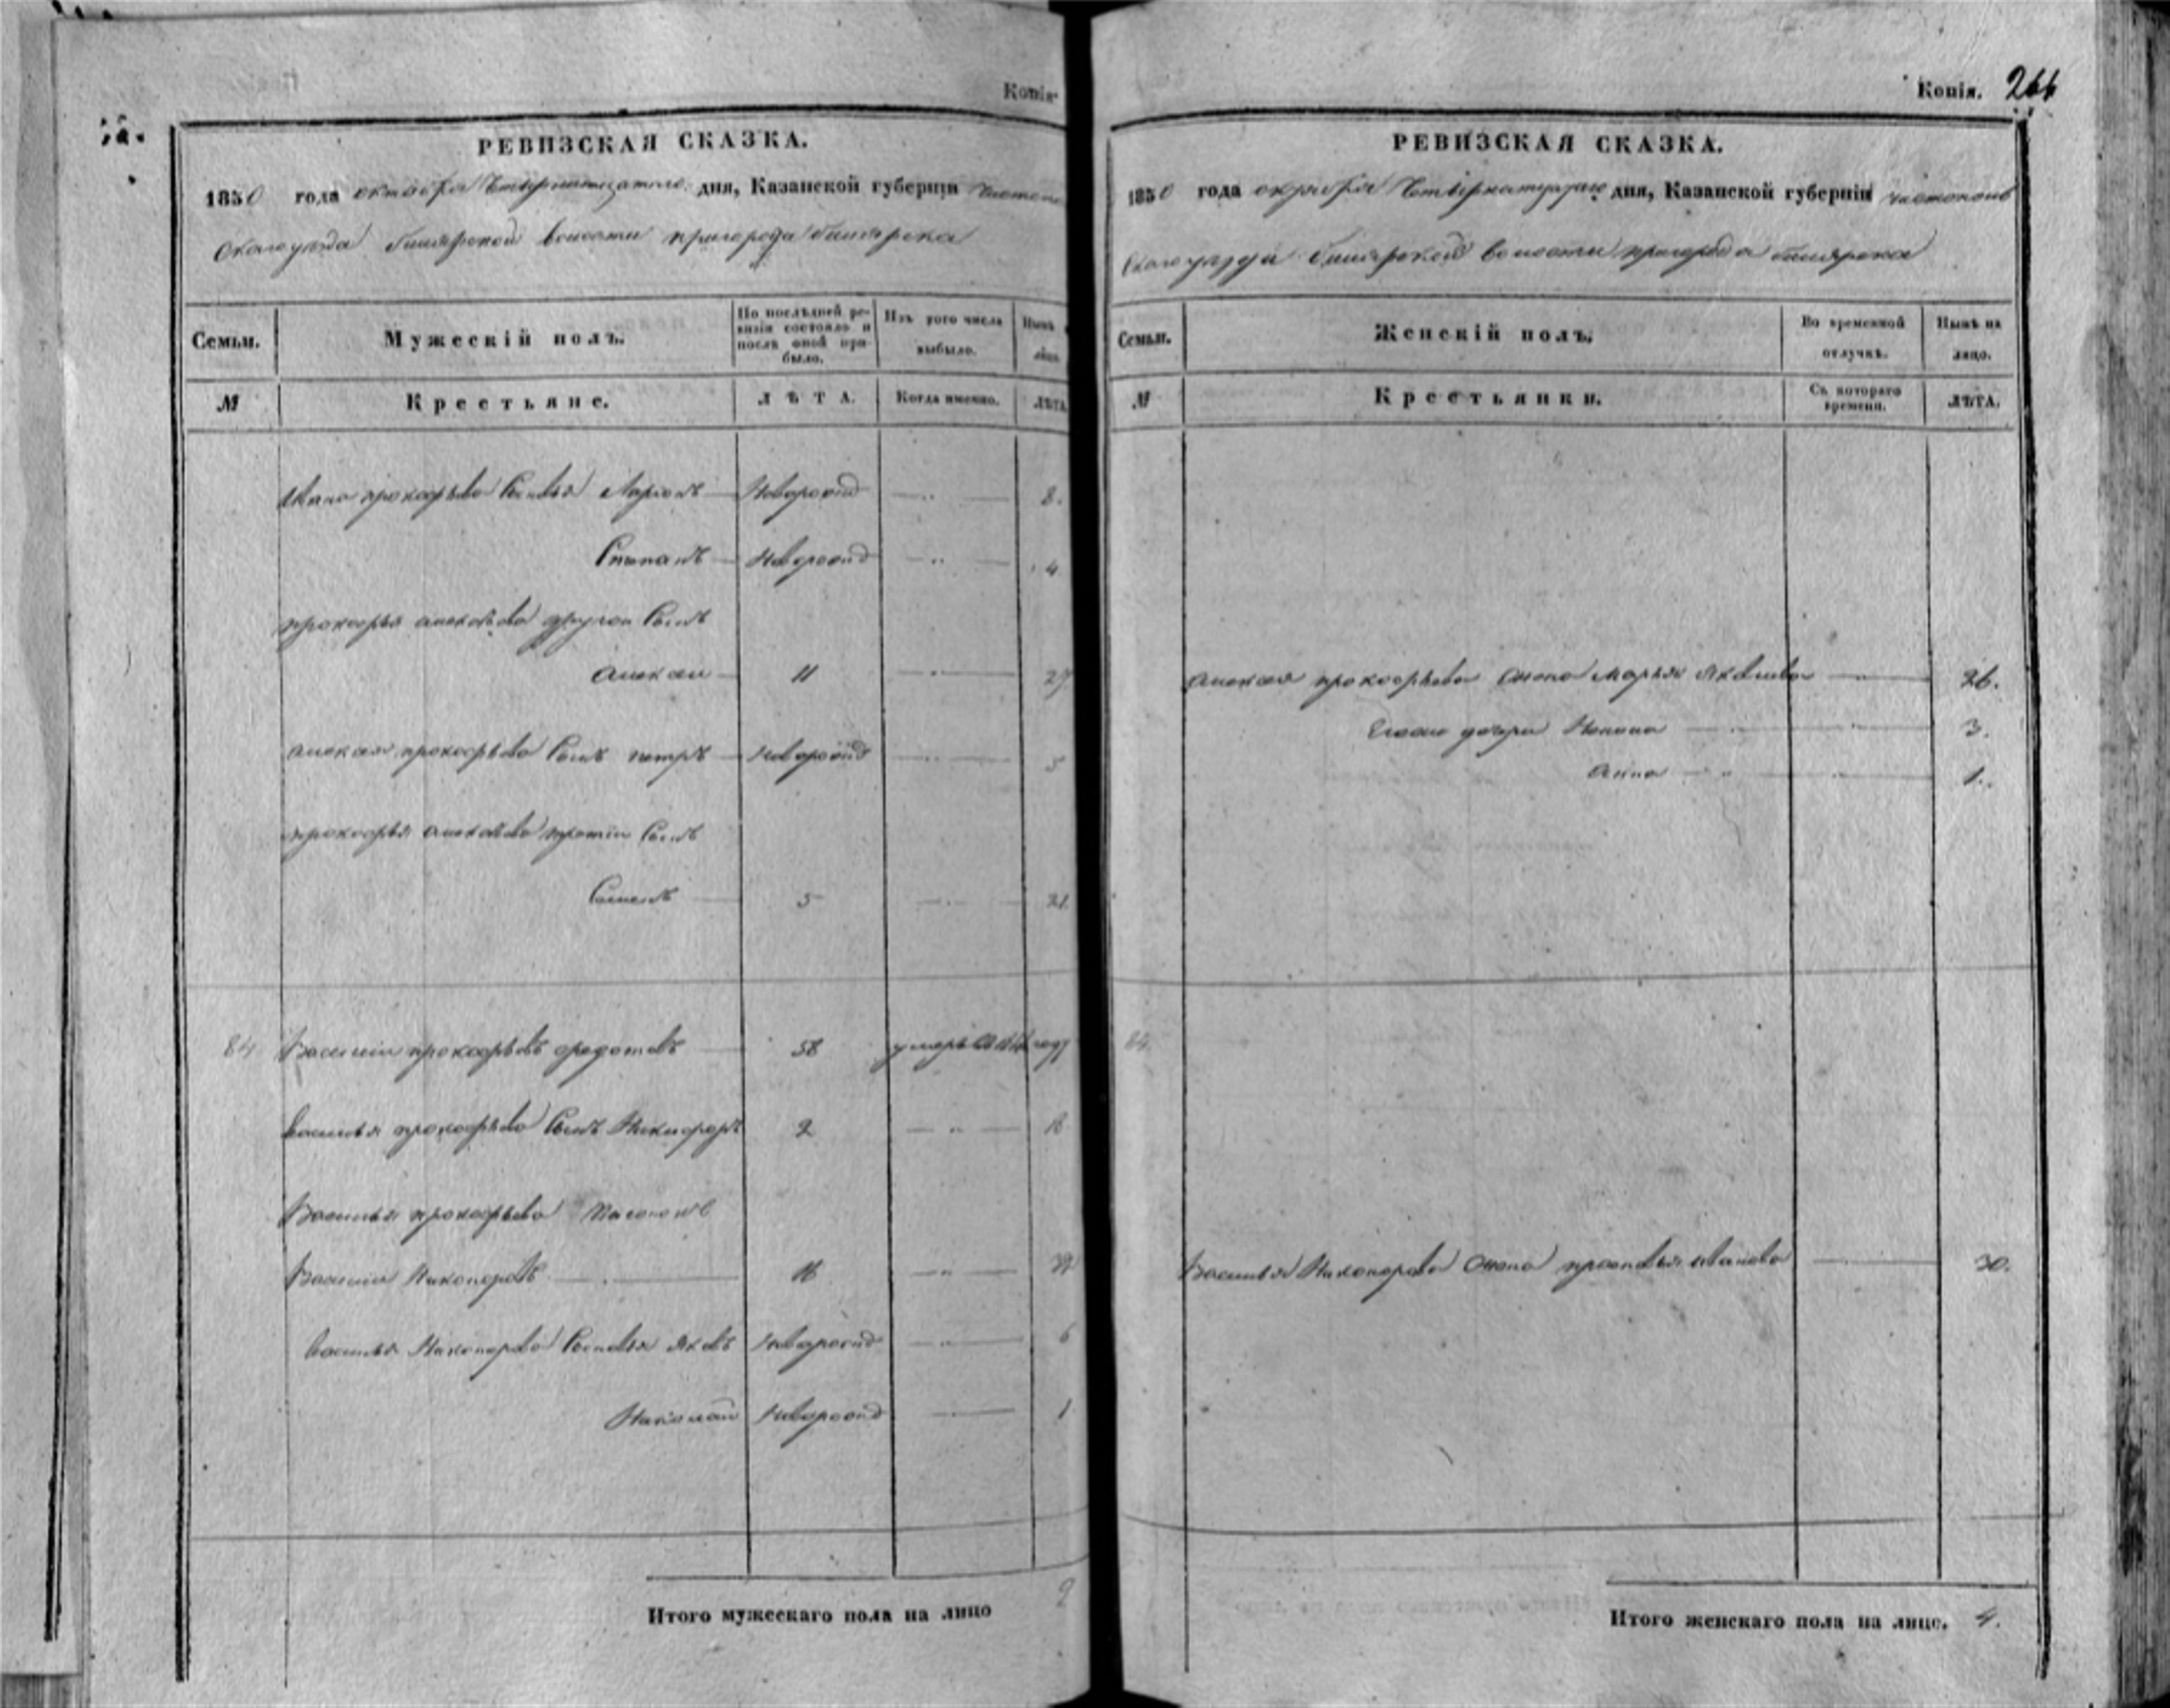 Копія.
РЕВИЗСКАЯ СКАЗКА.
1850 года октября дня, Казанской губерніи Чистопо
скаго уезда билярской волости пригорода билярска
Семьи. Мужескій полъ. По послѣдней ревизіи состояло и послѣ оной прибыло. Изъ того числа выбыло. Нынѣ на лицо.
№ Крестьяне. ЛѢТА. Когда именно. ЛѢТА.
Ивана прокофьева Сыновья Ларионъ Новорожд 8.
Степанъ Новорожд 4
прокофья алексѣева другой Сынъ
алексей 11 27
алексея прокофьева Сынъ петръ Новорожд 5
прокофья алексѣева третий Сынъ
Семенъ 5 21
84 Василий прокофьевъ федотовъ 58 умеръ году
Василья прокофьева Сынъ Никифоръ 2 18
Василья прокофьева
Василий Никоноровъ 16 32
Василья Никонорова Сыновья Яковъ Новорожд 6
Николай Новорожд 1
Итого мужескаго пола на лицо 9
Копія. 266
РЕВИЗСКАЯ СКАЗКА.
1850 года октября дня, Казанской губерніи чистополь
скаго уезда билярской волости пригорода билярска
Семьи. Женскій полъ. Во временной отлучкѣ. Нынѣ на лицо.
№ Крестьянки. Съ котораго времени. ЛѢТА.
алексея прокофьева жена Марья Яковлева 26.
дочери 3.
Анна 1.
84
Василья Никонорова жена прасковья иванова 30.
Итого женскаго пола на лицо. 4.